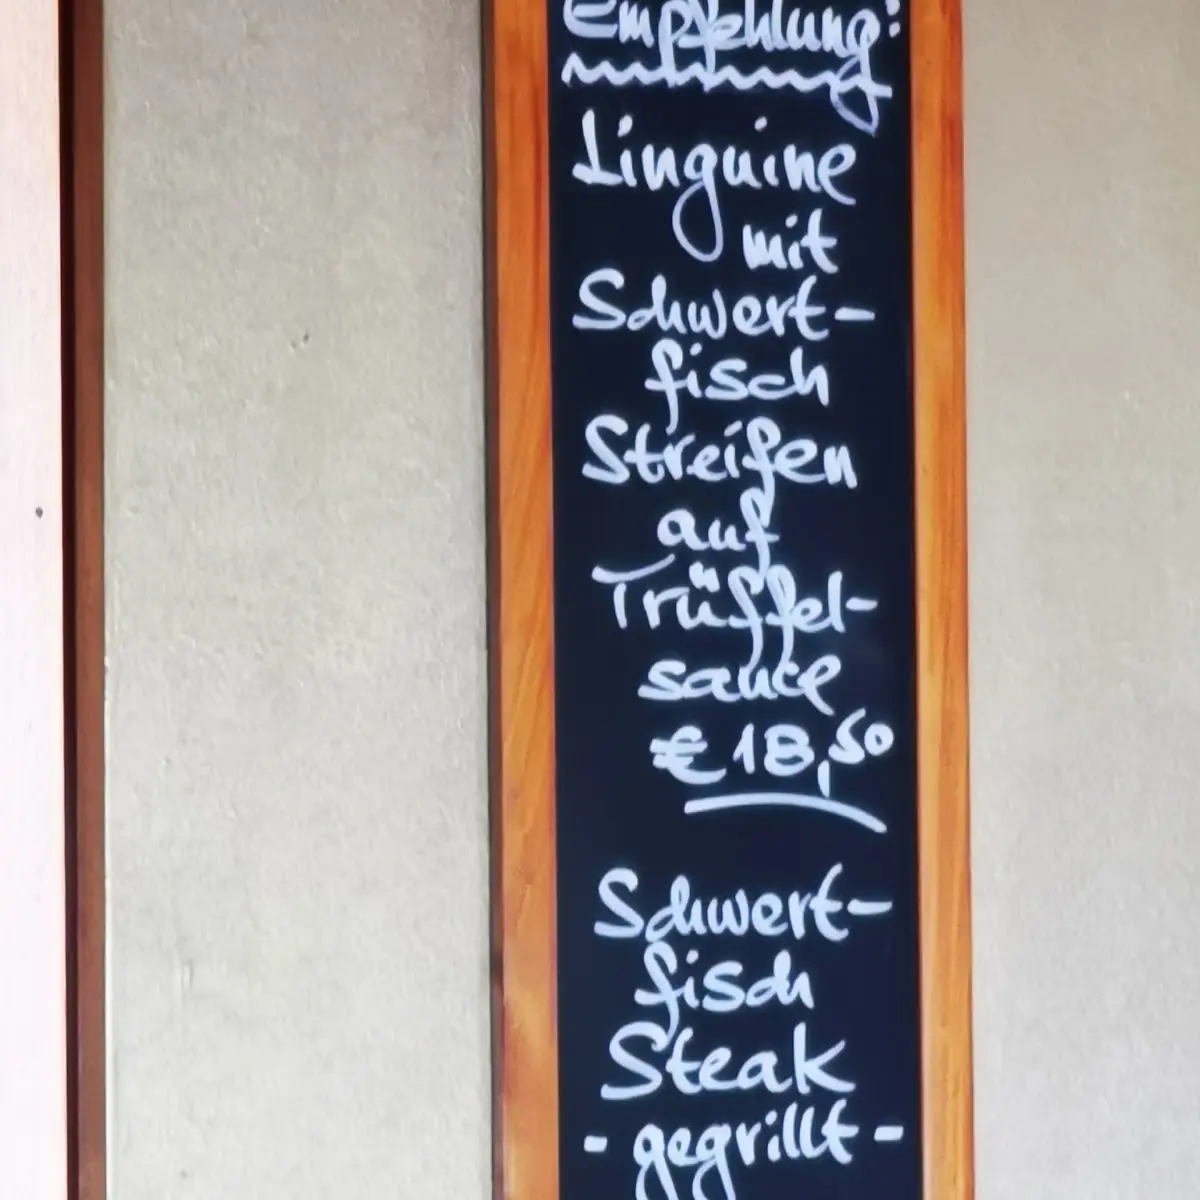 Empfehlung:
Linguine
mit
Schwert-
fisch
Streifen
auf
Trüffel-
sauce
€ 18,50
Schwert-
fisch
Steak
- gegrillt -